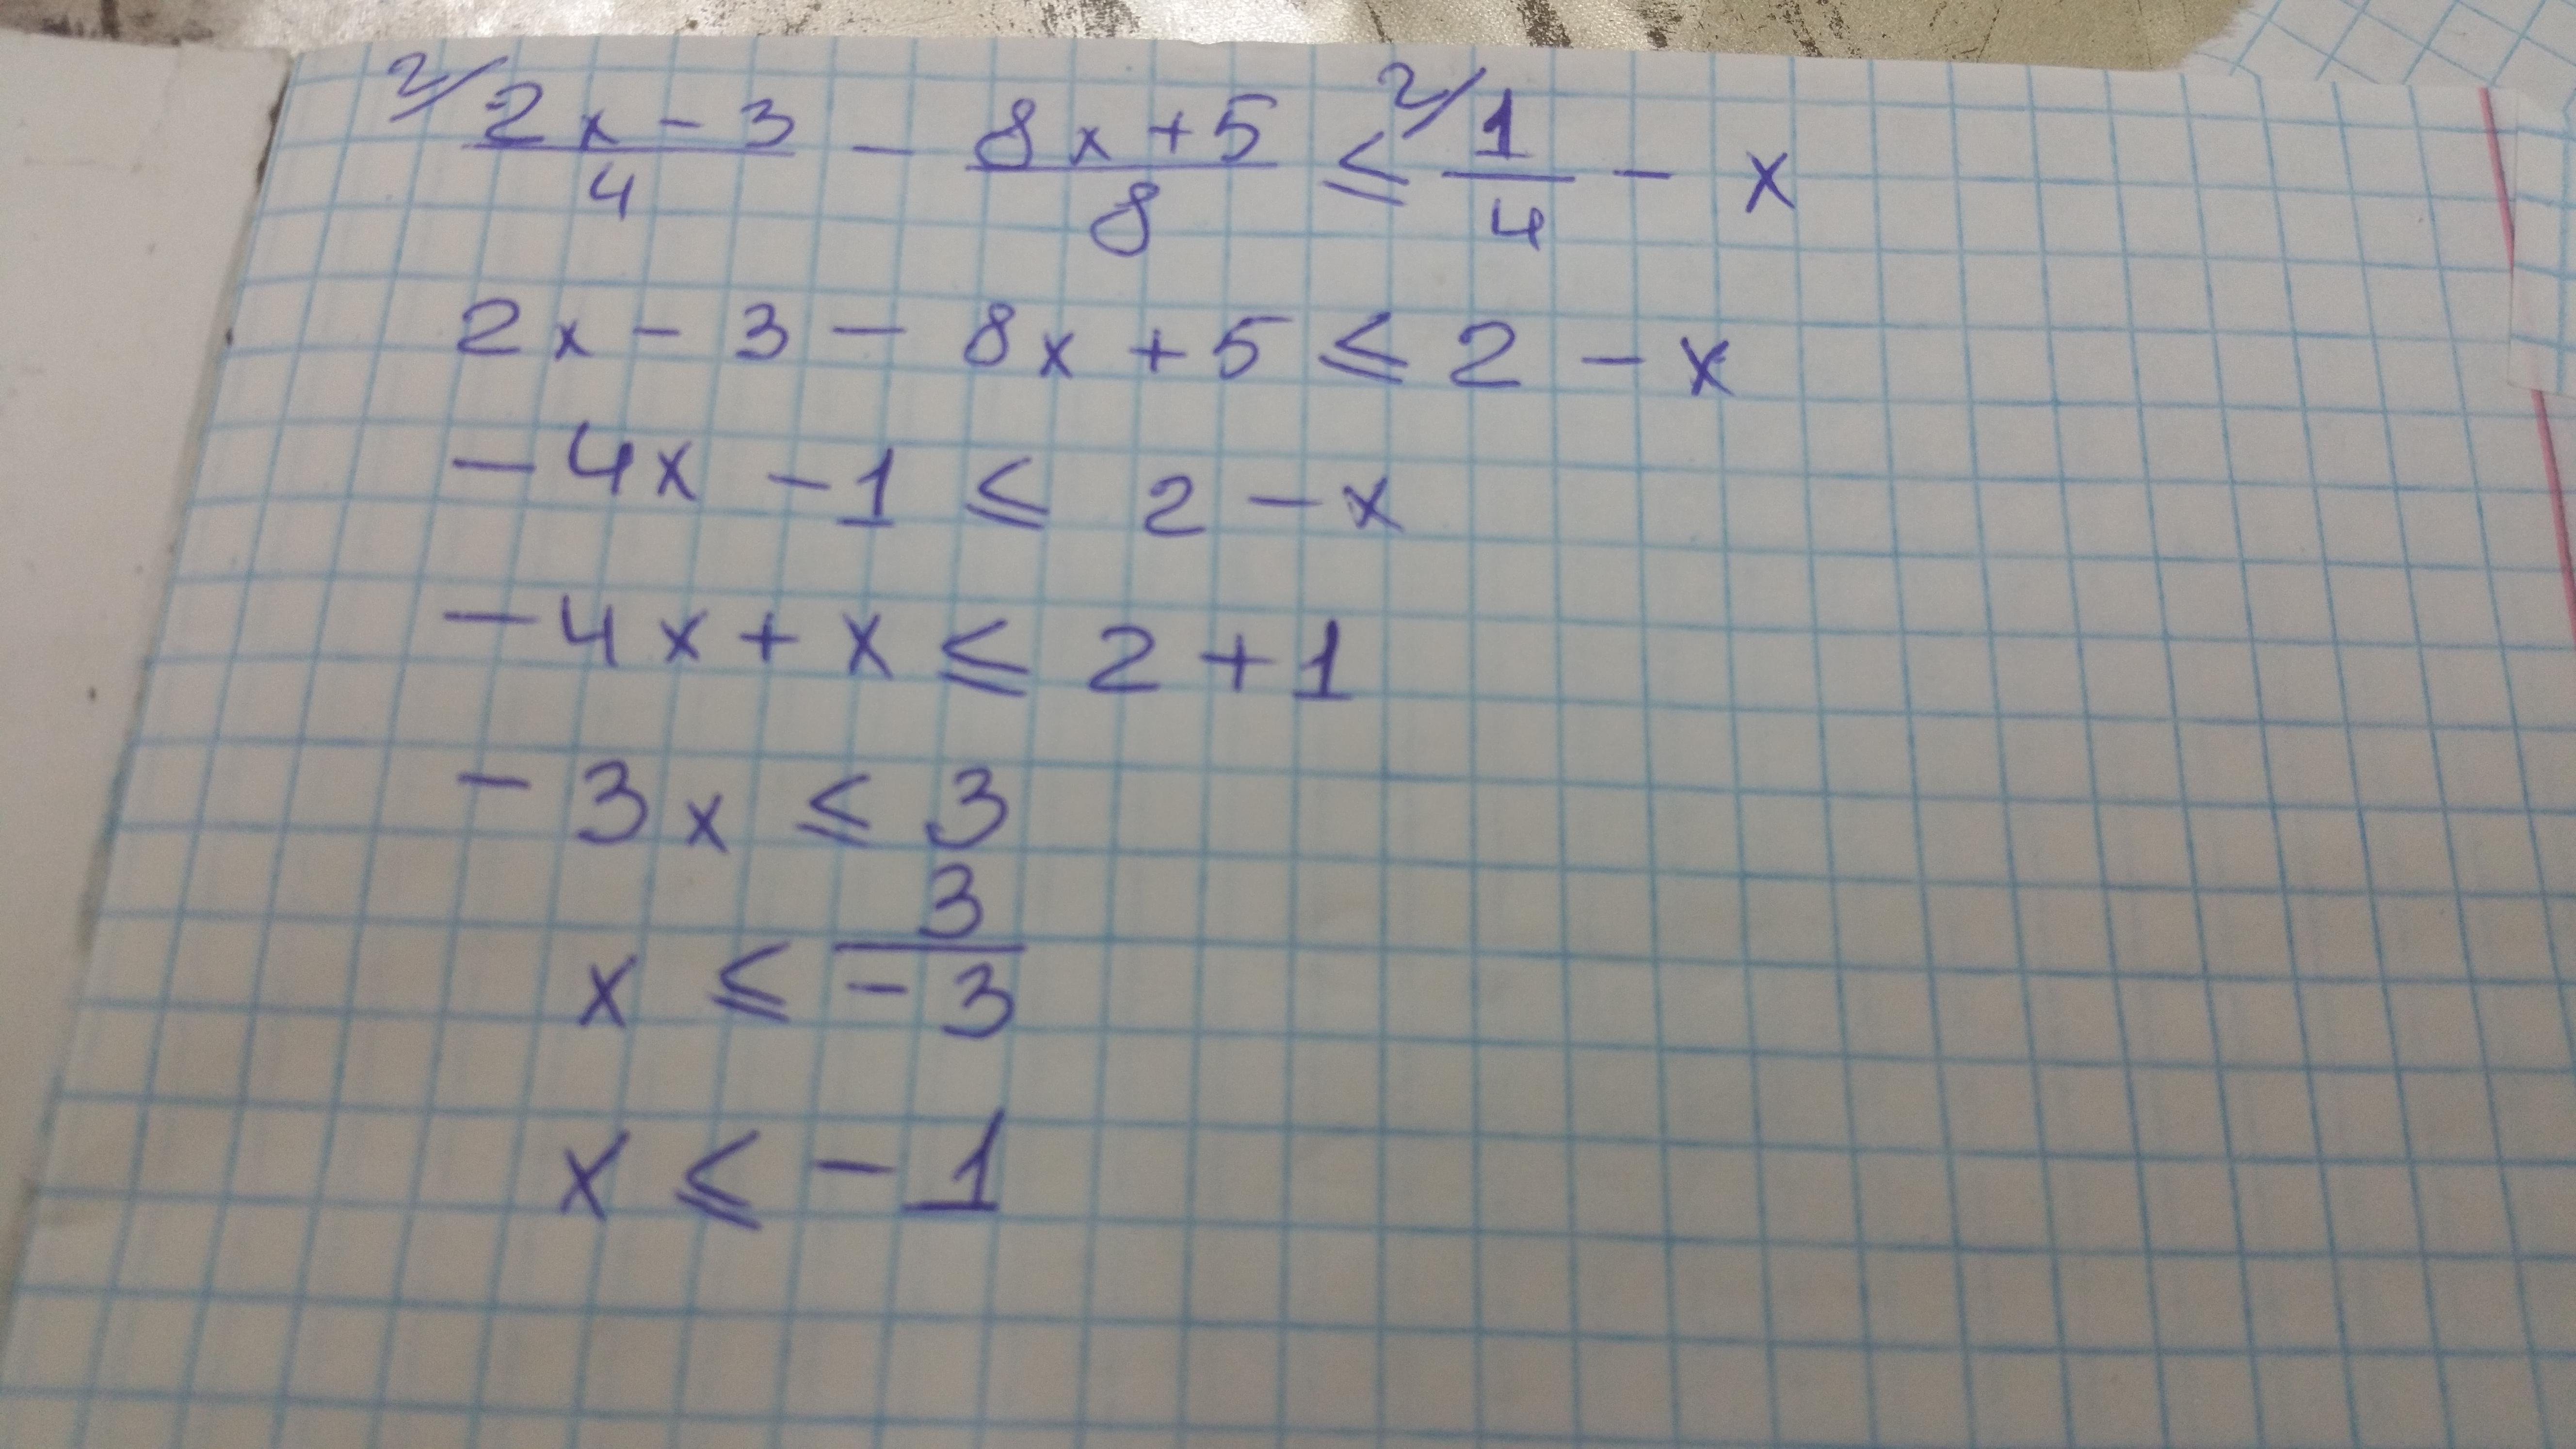 2/ (2x - 3)/4 - (8x + 5)/8 ≤ 2/ 1/4 - x
2x - 3 - 8x + 5 ≤ 2 - x
- 4x - 1 ≤ 2 - x
- 4x + x ≤ 2 + 1
- 3x ≤ 3
x ≤ 3/-3
x ≤ - 1